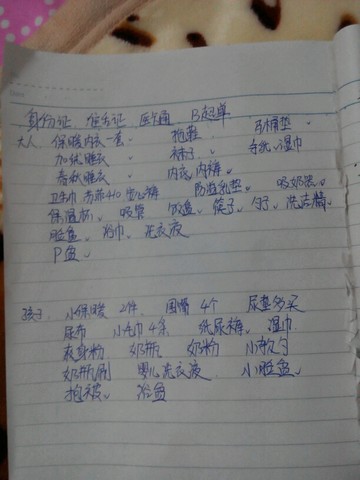 身份证、准生证、医保通、B超单
大人、保暖内衣一套、 拖鞋、 马桶垫、
加绒睡衣、 袜子、 手纸、湿巾
春秋睡衣、 内衣、内裤、
卫生巾 防溢乳垫、 吸奶器、
保温杯、吸管 饭盒、筷子、勺子、洗洁精
脸盆、浴巾、洗衣液
P盆、
孩子、小保暖 2件、围嘴 4个 尿垫多买
尿布 小毛巾4条 纸尿裤、湿巾
爽身粉 奶瓶 奶粉 小软勺
奶瓶刷 婴儿洗衣液 小脸盆、
抱被、 浴盆